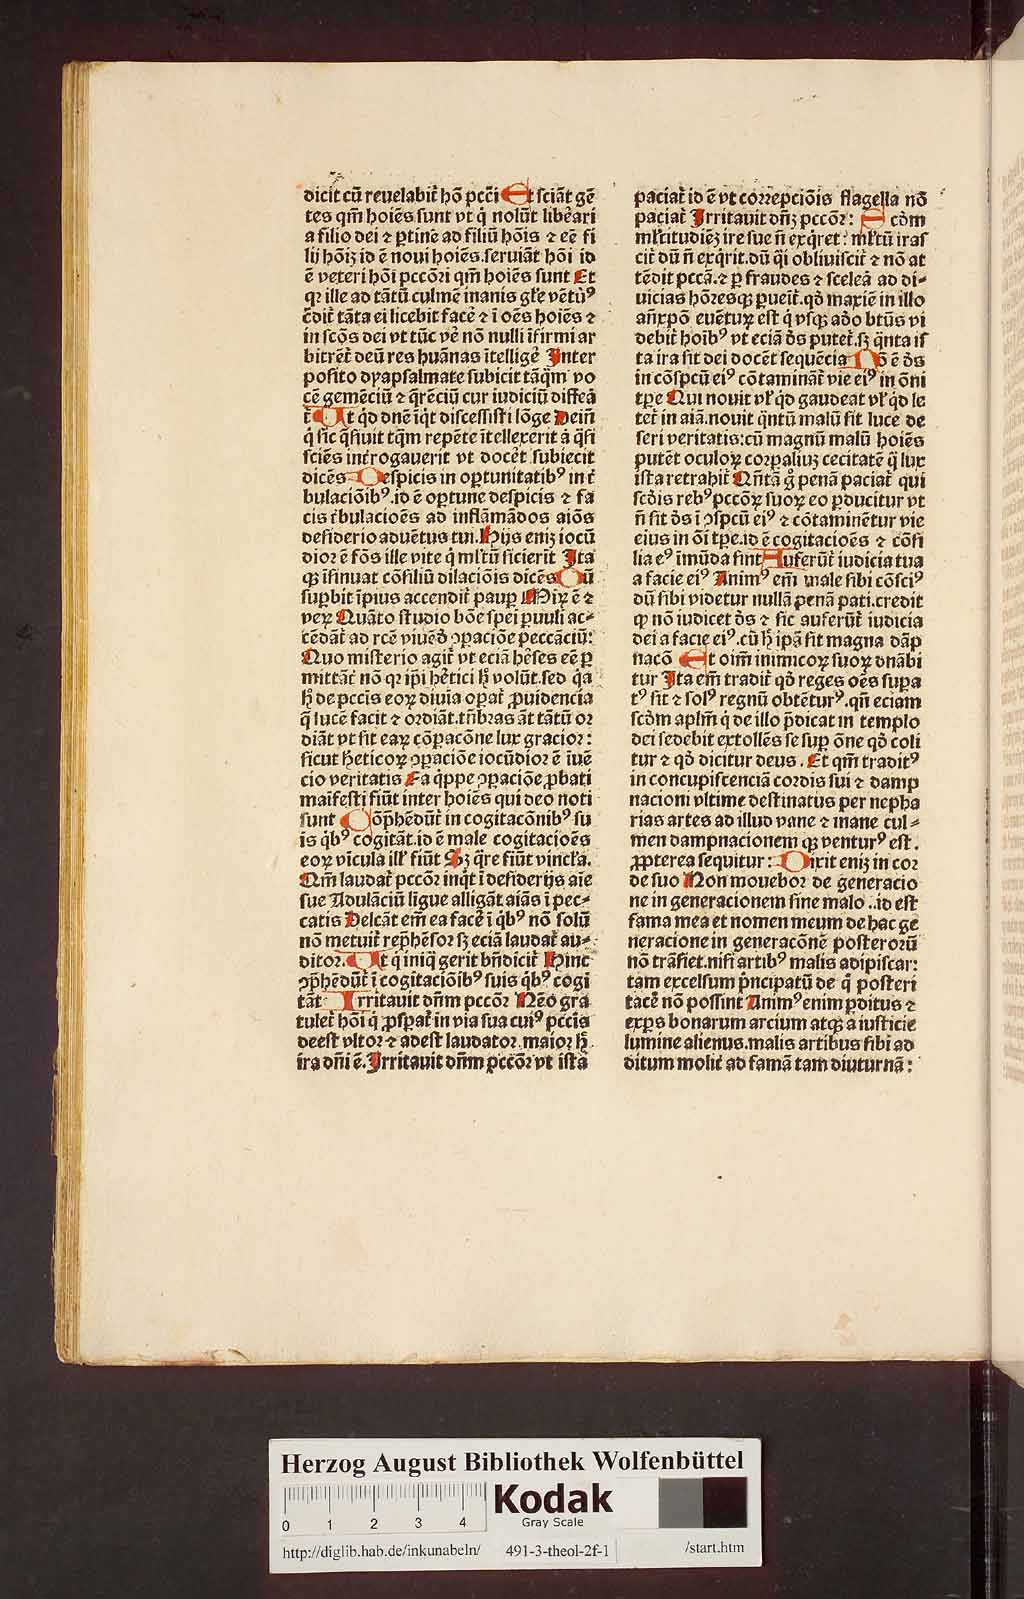 dicit cū reuelabit̄ hō pcc̄i Et sciāt gē
tes qm̄ hoiēs sunt vt q̄ nolūt liberari
a filio dei ⁊ ꝑtinē ad filiū hōis ⁊ eē fi
lij hōiꝫ id ē noui hoiēs.seruiāt hōi id
ē veteri hōi pccōri qm̄ hoiēs sunt Et
qꝛ ille ad tātū culmē inanis gl̄e vētūꝰ
c̄dit̄ tāta ei licebit facē ⁊ ī oēs hoiēs ⁊
in scōs dei vt tūc vē nō nulli īfirmi ar
bitrēt̄ deū res huānas ītelligē Inter
posito dyapsalmate subicit tāq̄m vo
cē gemēciū ⁊ q̄rēciū cur iudiciū diffeā
t̄ Ut qd dn̄e īq̄t discessisti lōge Dein̄
q̄ sic q̄siuit tq̄m repēte ītellexerit ā q̄si
sciēs int̄rogauerit vt docēt subiecit
dicēs Despicis in optunitatibꝰ in t̄
bulaciōibꝰ.id ē oꝑtune despicis ⁊ fa
cis t̄bulacioēs ad inflāmādos aiōs
desiderio aduētus tui.Hijs eniꝫ iocū
dior ē fōs ille vite q̄ ml̄tū sicierīt Ita
qꝫ īsinuat cōsiliū dilaciōis dicēs Dū
suꝑbit īpius accendit̄ pauꝑ Miꝝ ē ⁊
veꝝ Quāto studio bōe spei ꝑuuli ac-
cēdāt̄ ad rcē viuēd ꝯꝑaciōe peccāciū:
Quo misterio agit̄ vt eciā hēses eē ꝑ
mittāt̄ nō qꝛ ip̄i hētici h̄ volūt.sed q̄a
h̄ de pccīs eoꝝ diuia oꝑat̄ ꝓuidencia
q̄ lucē facit ⁊ ordiāt.tn̄bras āt tātū or
diāt vt sit eaꝝ cōꝑacōne lux gracior:
sicut h̄eticoꝝ ꝯꝑaciōe iocūdior ē iuē
cio veritatis Ea q̄ppe ꝯꝑaciōe ꝓbati
maīfesti fiūt inter hoiēs qui deo noti
sunt Cōp̄hēdūt̄ in cogitacōnibꝰ su
is q̄bꝰ cogitāt.id ē male cogitacioēs
eoꝝ vīcula ill̄ fiūt Sꝫ q̄re fiūt vincl̄a.
Qm̄ laudat̄ pccōr inq̄t ī desiderijs aīe
sue Adulāciū ligue alligāt aiās ī pec-
catis Delcāt em̄ ea facē ī q̄bꝰ nō solū
nō metuit̄ rep̄hēsor sꝫ eciā laudat̄ au-
ditor. Ut q̄ iniq̄ gerit bn̄dicit̄ Hinc
ꝯp̄hēdūt̄ ī cogitaciōibꝰ suis q̄bꝰ cogi
tāt Irritauit dn̄m pccōr Nēo gra
tulet̄ hōi q̄ ꝓspat̄ in via sua cuiꝰ pccīs
deest vltor ⁊ adest laudator.maior h̄
ira dn̄i ē.Irritauit dn̄m pccōr vt ista
paciat̄ id ē vt correpciōis flagella nō
paciat̄ Irritauit dn̄ꝫ pccōr: S cōm
ml̄titudiēꝫ ire sue n̄ exq̄ret: ml̄tū iras
cit̄ dū n̄ exq̄rit.dū q̄i obliuiscit̄ ⁊ nō at
tēdit pccā.⁊ ꝑ fraudes ⁊ sceleā ad di-
uicias hōresqꝫ ꝑueīt.qd maxiē in illo
an̄xpō euētuꝝ est q̄ vsqꝫ ado btūs vi
debit̄ hoībꝰ vt eciā ds putet̄.sꝫ q̄nta is
ta ira sit dei docēt sequēcia Nō ē ds
in cōspcū eiꝰ cōtaminat̄ vie eiꝰ in ōni
tꝑe Qui nouit vl̄ qd gaudeat vl̄ qd le
tet̄ in aiā.nouit q̄ntū malū sit luce de
seri veritatis:cū magnū malū hoiēs
putēt oculoꝝ corꝑaliuꝫ cecitatē q̄ lux
ista retrahit̄ Qn̄tā g̊ penā paciat̄ qui
scdis rebꝰ pccōꝝ suoꝝ eo ꝑducitur vt
n̄ sit ds ī ꝯspcū eiꝰ ⁊ cōtaminētur vie
eius in ōi tꝑe.id ē cogitacioēs ⁊ cōsi
lia eꝰ īmūda sint Auferūt̄ iudicia tua
a facie eiꝰ Animꝰ em̄ male sibi cōsciꝰ
dū sibi videtur nullā penā pati.credit
qꝫ nō iudicet ds ⁊ sic auferūt̄ iudicia
dei a facie eiꝰ.cū h̄ ip̄ā sit magna dāp
nacō Et oīm inimicoꝝ suoꝝ dnābi
tur Ita em̄ tradit̄ qd reges oēs suꝑa
tꝰ sit ⁊ solꝰ regnū obtēturꝰ.qn̄ eciam
scdm aplm̄ q̄ de illo p̄dicat in templo
dei sedebit extollēs se suꝑ ōne qd coli
tur ⁊ qd dicitur deus. Et qm̄ traditꝰ
in concupiscenciā cordis sui ⁊ damp
nacioni vltime destinatus per nepha
rias artes ad illud vane ⁊ inane cul-
men dampnacionem qꝫ venturꝰ est.
ꝓpterea sequitur: Dixit eniꝫ in cor
de suo Non mouebor de generacio
ne in generacionem sine malo..id est
fama mea et nomen meum de hac ge
neracione in generacōnē posterorū
nō trāsiet.nisi artibꝰ malis adipiscar:
tam excelsum p̄ncipatū de q̄ posteri
tacē nō possint Animꝰ enim ꝑditus ⁊
exꝑs bonarum arcium atqꝫ a iusticie
lumine alienus.malis artibus sibi ad
ditum molit̄ ad famā tam diuturnā:
Herzog August Bibliothek Wolfenbüttel
0 1 2 3 4
Kodak
Gray Scale
http://diglib.hab.de/inkunabeln/ 491-3-theol-2f-1 /start.htm